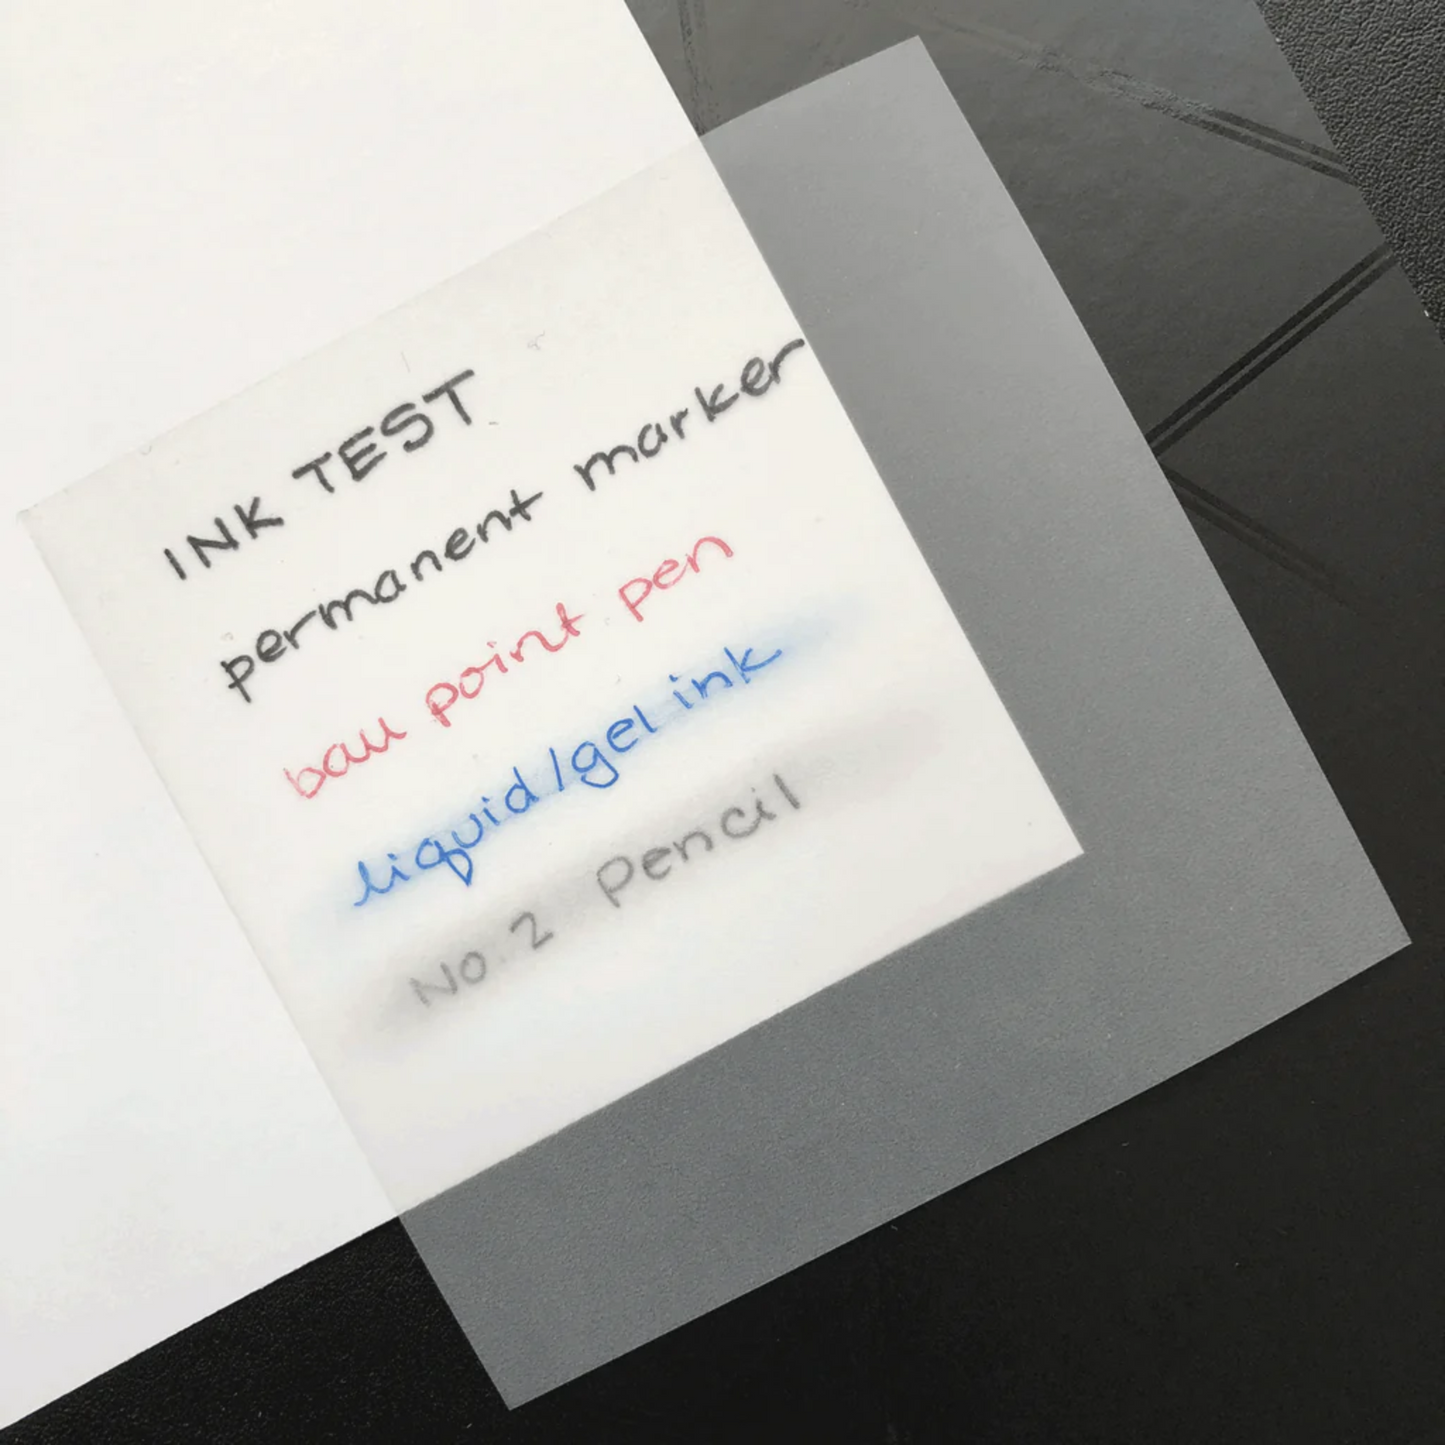 INK TEST
permanent marker
ball point pen
liquid/gel ink
No. 2 Pencil